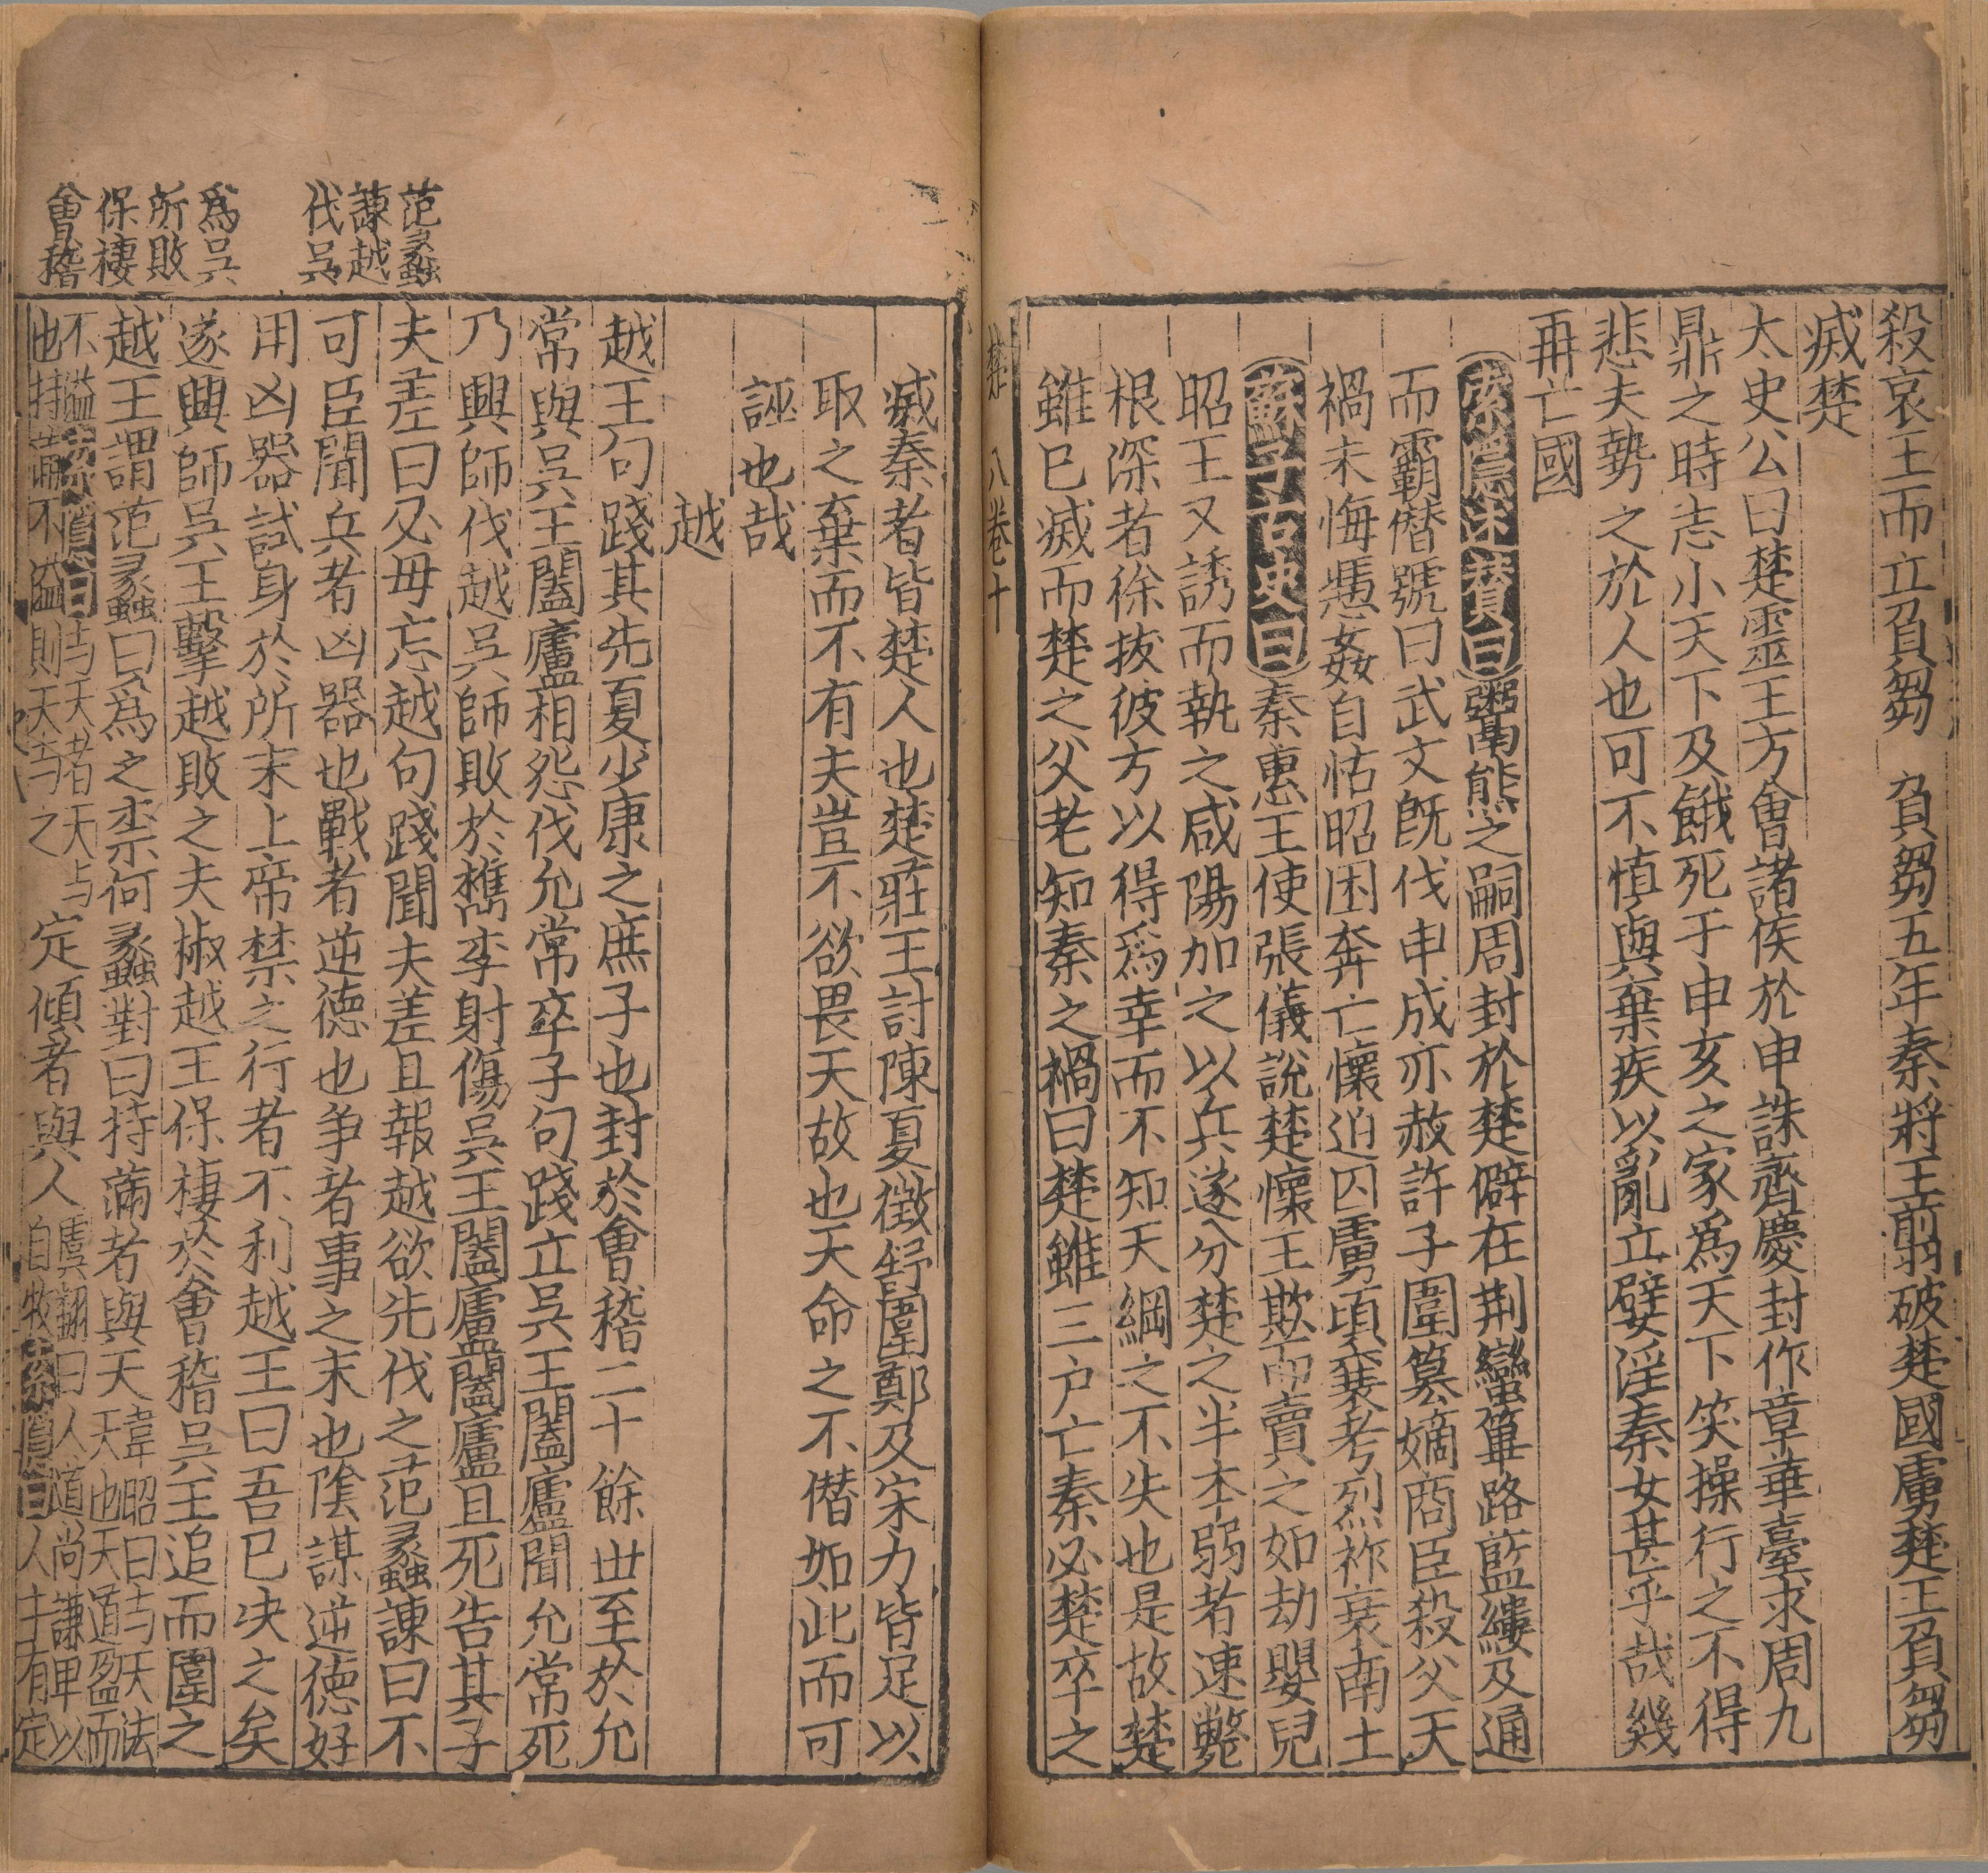 殺哀王而立負芻 負芻五年秦將王翦破楚國虜楚王負芻
滅楚
太史公曰楚靈王方會諸侯於申誅齊慶封作章華臺求周九
鼎之時志小天下及餓死于申亥之家爲天下笑操行之不得
悲夫勢之於人也可不慎與棄疾以亂立嬖淫秦女甚乎哉幾
再亡國
索隱述贊曰鬻熊之嗣周封於楚僻在荆蠻篳路藍縷及通
而霸僭號曰武文既伐申成亦赦許子圍篡嫡商臣殺父天
禍未悔慿姦自怙昭困奔亡懷迫囚虜頃襄考烈祚衰南土
蘇子古史曰秦惠王使張儀說楚懷王欺而賣之如劫嬰兒
昭王又誘而執之咸陽加之以兵遂分楚之半本弱者速斃
根深者徐拔彼方以得爲幸而不知天綱之不失也是故楚
雖已滅而楚之父老知秦之禍曰楚雖三户亡秦必楚卒之
楚 八卷十
滅秦者皆楚人也楚莊王討陳夏徵舒圍鄭及宋力皆足以
取之棄而不有夫豈不欲畏天故也天命之不僭如此而可
誣也哉
越
越王句踐其先夏少康之庶子也封於會稽二十餘世至於允
常與吳王闔廬相怨伐允常卒子句踐立吳王闔廬聞允常死
乃興師伐越吳師敗於檇李射傷吳王闔廬闔廬且死告其子
夫差曰必毋忘越句踐聞夫差且報越欲先伐之范蠡諫曰不
可臣聞兵者凶器也戰者逆德也爭者事之末也陰謀逆德好
用凶器試身於所末上帝禁之行者不利越王曰吾已决之矣
遂興師吳王擊越敗之夫椒越王保棲於會稽吳王追而圍之
越王謂范蠡曰爲之柰何蠡對曰持滿者與天韋昭曰与天法天也天道盈而
不溢索隱曰与天者天与也持滿不溢則天与之定傾者與人虞翻曰人道尚謙卑以自牧索隱曰人主有定
范蠡
諫越
伐吳
爲吳
所敗
保棲
會稽